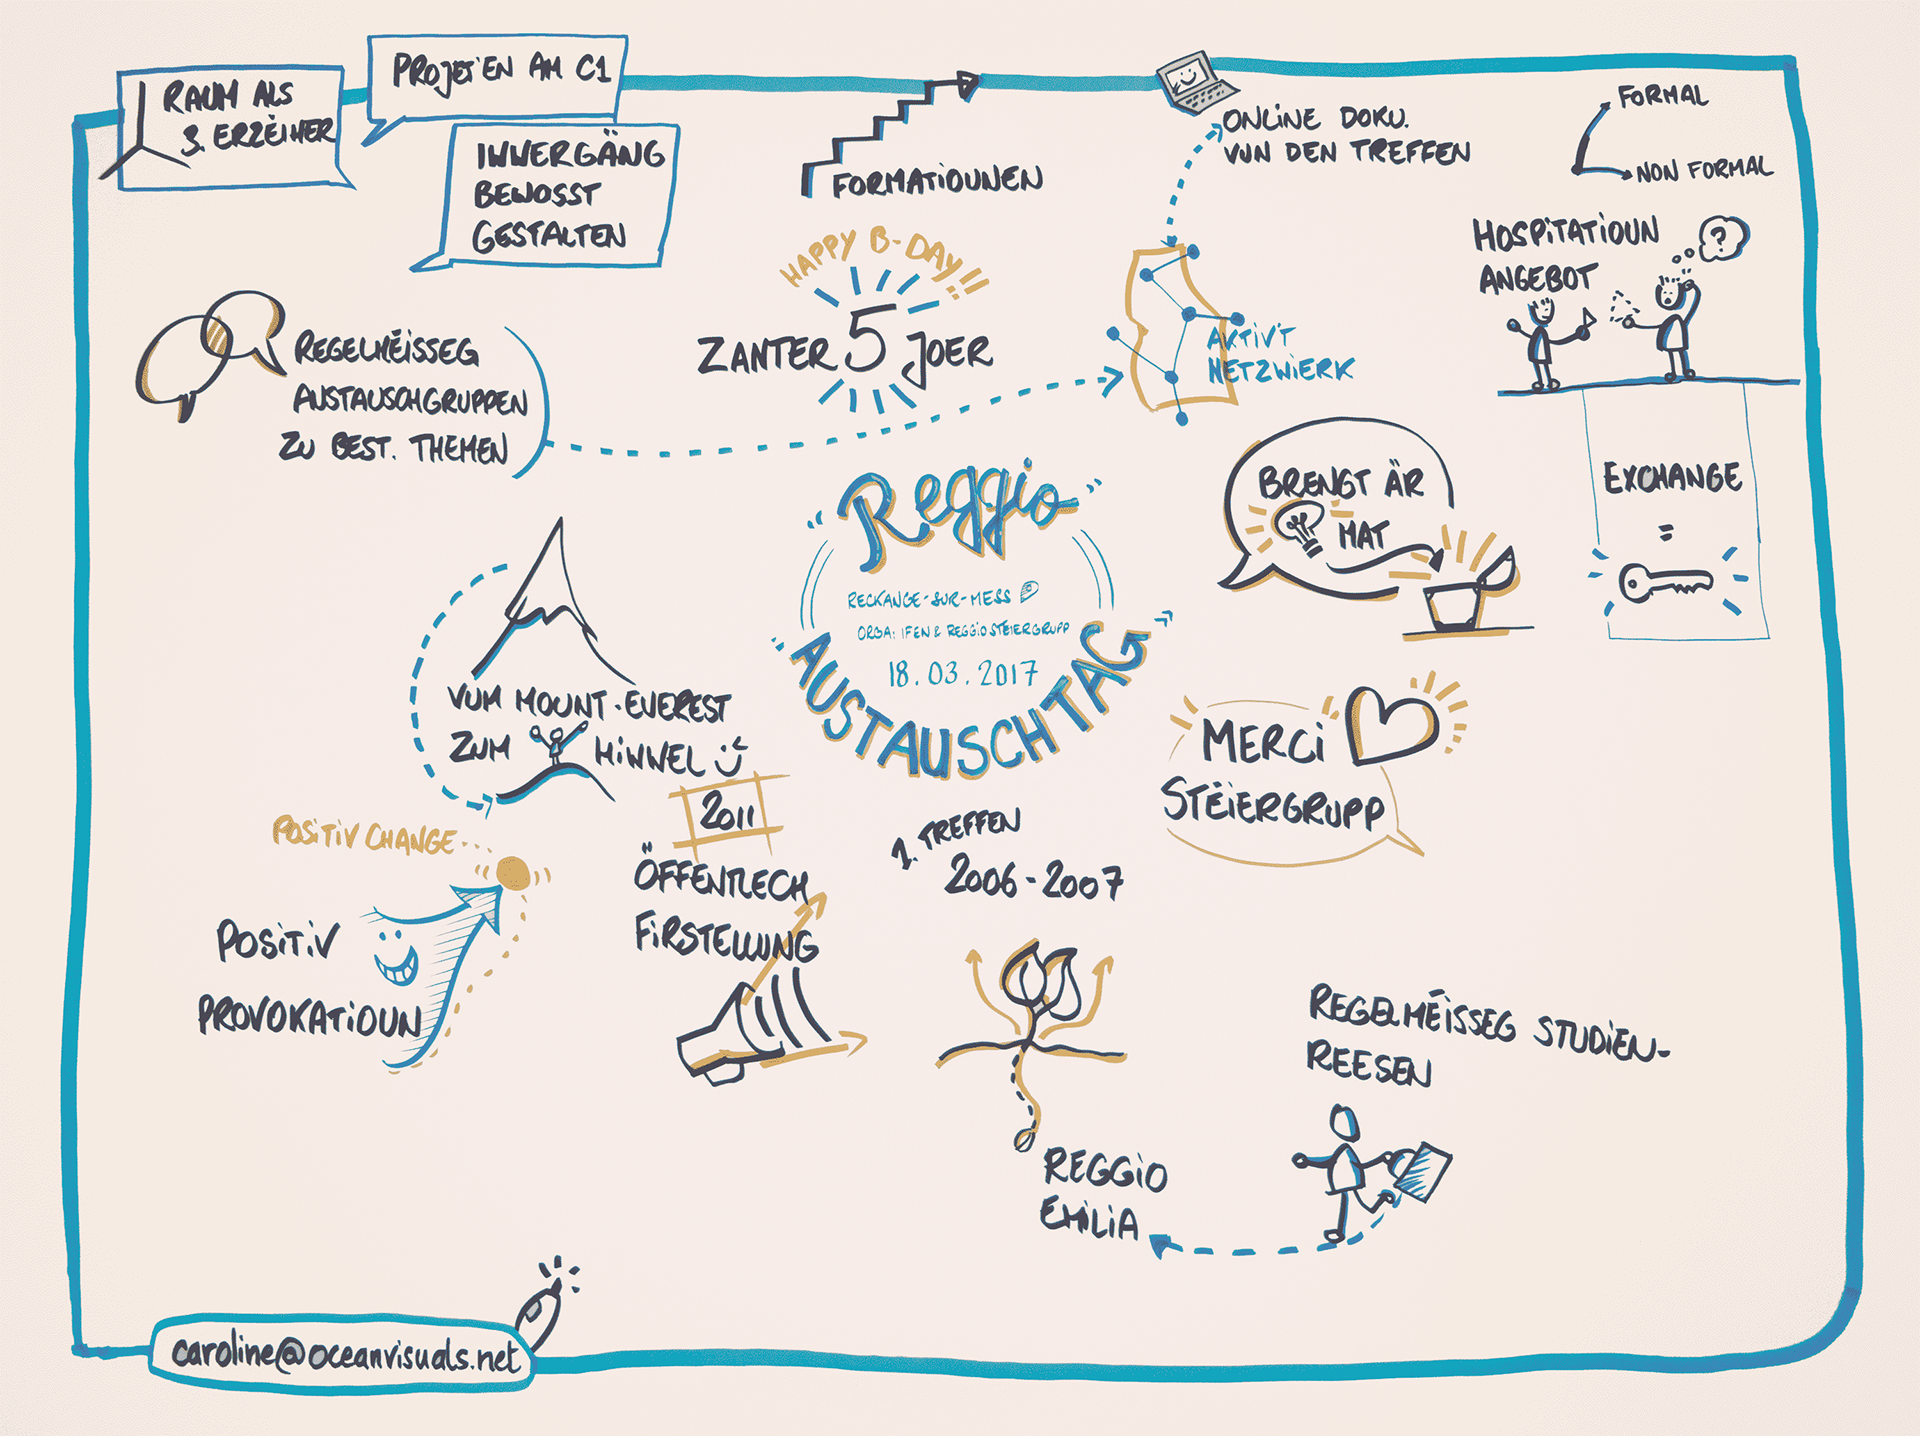 RAUM ALS
3. ERZÉIHER
PROJET'EN AM C1
IWWERGÄNG
BEWOSST
GESTALTEN
FORMATIOUNEN
ONLINE DOKU.
VUN DEN TREFFEN
FORMAL
NON FORMAL
HOSPITATIOUN
ANGEBOT
?
HAPPY B-DAY!!
ZANTER 5 JOER
AKTIV'T
NETZWIERK
REGELMÉISSEG
AUSTAUSCHGRUPPEN
ZU BEST. THEMEN
BRENGT ÄR
MAT
EXCHANGE
=
Reggio
RECKANGE-SUR-MESS
ORGA: IFEN & REGGIO STEIERGRUPP
18.03.2017
AUSTAUSCHTAG
VUM MOUNT-EVEREST
ZUM HIWWEL
MERCI
STÉIERGRUPP
POSITIV CHANGE...
POSITIV
PROVOKATIOUN
2011
ÖFFENTLECH
FIRSTELLUNG
1. TREFFEN
2006-2007
REGELMÉISSEG STUDIEN-
REESEN
REGGIO
EMILIA
caroline@oceanvisuals.net